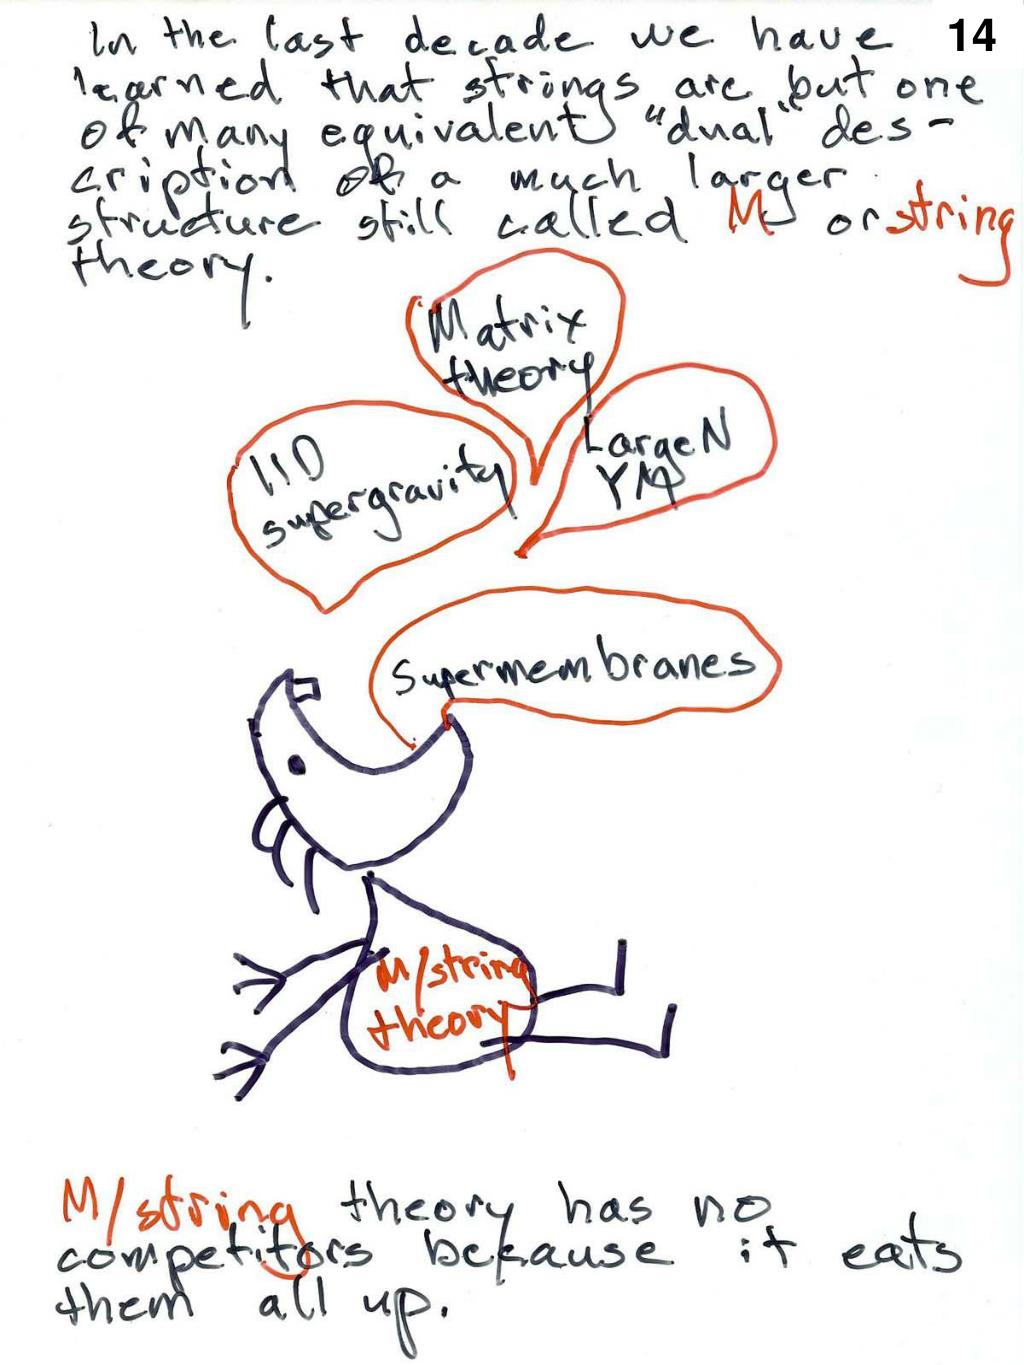 In the last decade we have
14
learned that strings are but one
of many equivalent "dual" des-
cription of a much larger
structure still called M or string
theory.
Matrix
theory
Large N
YM
11D
supergravity
Supermembranes
M/string
theory
M/string theory has no
competitors because it eats
them all up.